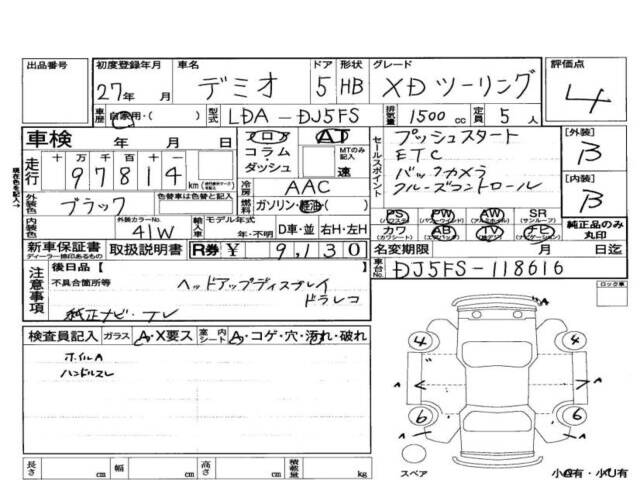 出品番号 初度登録年月 車名 ドア 形状 グレード 評価点
27年 月 デミオ 5 HB XDツーリング 4
車歴 自家用・( ) 型式 LDA-DJ5FS 排気量 1500cc 定員 5人
車検 年 月 日 フロア AT セールスポイント プッシュスタート [外装] B
コラム・ダッシュ MTのみ記入 速 ETC
走行 十万千百十一 97814 km バックカメラ [内装] B
冷房 AAC クルーズコントロール
外装色 ブラック 色替車は色替と記入 燃料 ガソリン・軽油( )
PS (パワステ) PW (パワーウインドウ) AW (アルミホイル) SR (サンルーフ) 純正品のみ丸印
内装色 外装カラーNo. 41W 輸入車 モデル年式 年・不明 D車・並 右H・左H カワ (カワシート) AB (エアバック) TV (テレビ) ナビ (ナビゲーション)
新車保証書 ディーラー捺印あるもの 取扱説明書 R券 ¥ 9,130 名変期限 月 日迄
注意事項 後日品【 】 車台No. DJ5FS-118616
不具合箇所等 ヘッドアップディスプレイ
ドラレコ
純正ナビ・TV
現在色を記入→
ロック車
検査員記入 ガラス A・X要ス 室内シート A・コゲ・穴・汚れ・破れ
ホイルA
ハンドルスレ
4 4
A A
6 6
長さ cm 幅 cm 高さ cm 積載量 kg スペア 小A有・小U有